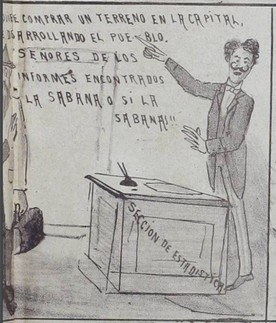 COMPRAR UN TERRENO EN LA CAPITAL,
ARROLLANDO EL PUEBLO.
SEÑORES DE LOS
INFORMES ENCONTRADOS
LA SABANA O SI LA
SABANA!!
SECCION DE ESTADISTICA